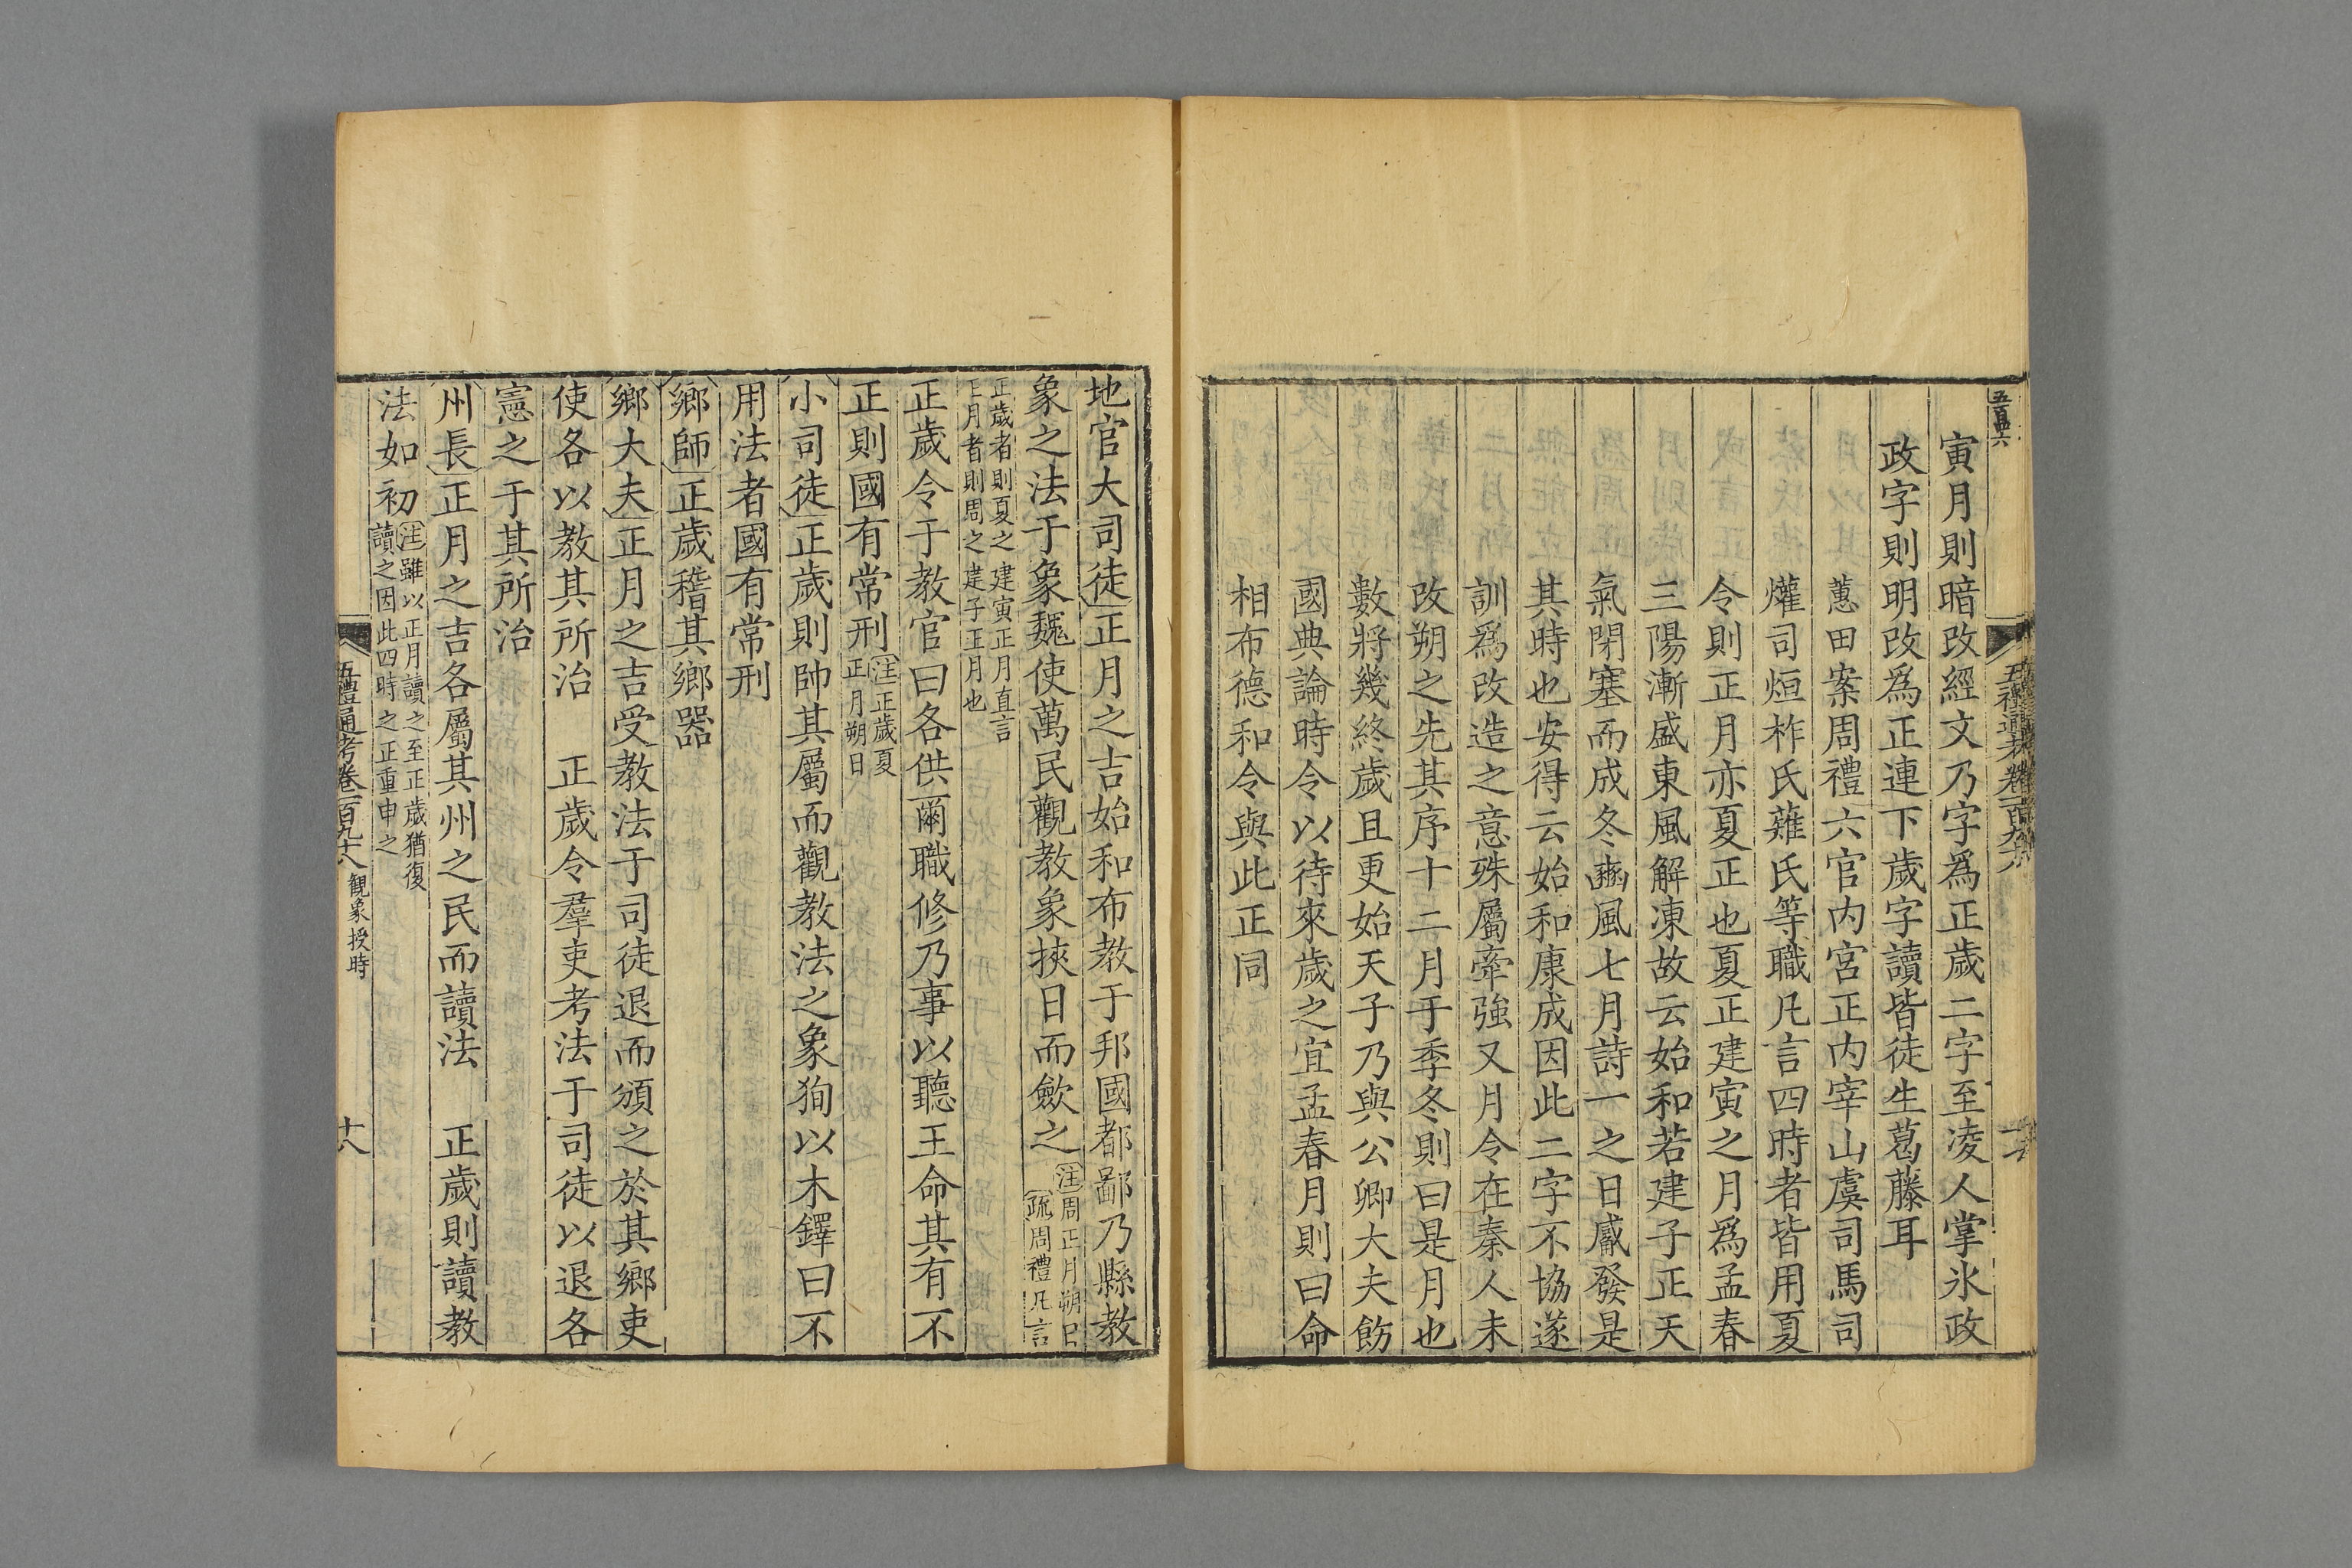 寅月則暗改經文乃字爲正歲二字至淩人掌氷政
政字則明改爲正連下歲字讀皆徒生葛藤耳
蕙田案周禮六官內宮正內宰山虞司馬司
爟司烜柞氏薙氏等職凡言四時者皆用夏
令則正月亦夏正也夏正建寅之月爲孟春
三陽漸盛東風解凍故云始和若建子正天
氣閉塞而成冬豳風七月詩一之日觱發是
其時也安得云始和康成因此二字不協遂
訓爲改造之意殊屬牽強又月令在秦人未
改朔之先其序十二月于季冬則曰是月也
數將幾終歲且更始天子乃與公卿大夫飭
國典論時令以待來歲之宜孟春月則曰命
相布德和令與此正同
地官大司徒正月之吉始和布教于邦國都鄙乃縣教
象之法于象魏使萬民觀教象挾日而斂之
注周正月朔日
疏周禮凡言
正歲者則夏之建寅正月直言
正月者則周之建子正月也
正歲令于教官曰各供爾職修乃事以聽王命其有不
正則國有常刑
注正歲夏
正月朔日
小司徒正歲則帥其屬而觀教法之象狥以木鐸曰不
用法者國有常刑
鄉師正歲稽其鄉器
鄉大夫正月之吉受教法于司徒退而頒之於其鄉吏
使各以教其所治 正歲令羣吏考法于司徒以退各
憲之于其所治
州長正月之吉各屬其州之民而讀法 正歲則讀教
法如初
注雖以正月讀之至正歲猶復
讀之因此四時之正重申之
五禮通考卷一百九十八 觀象授時
十八